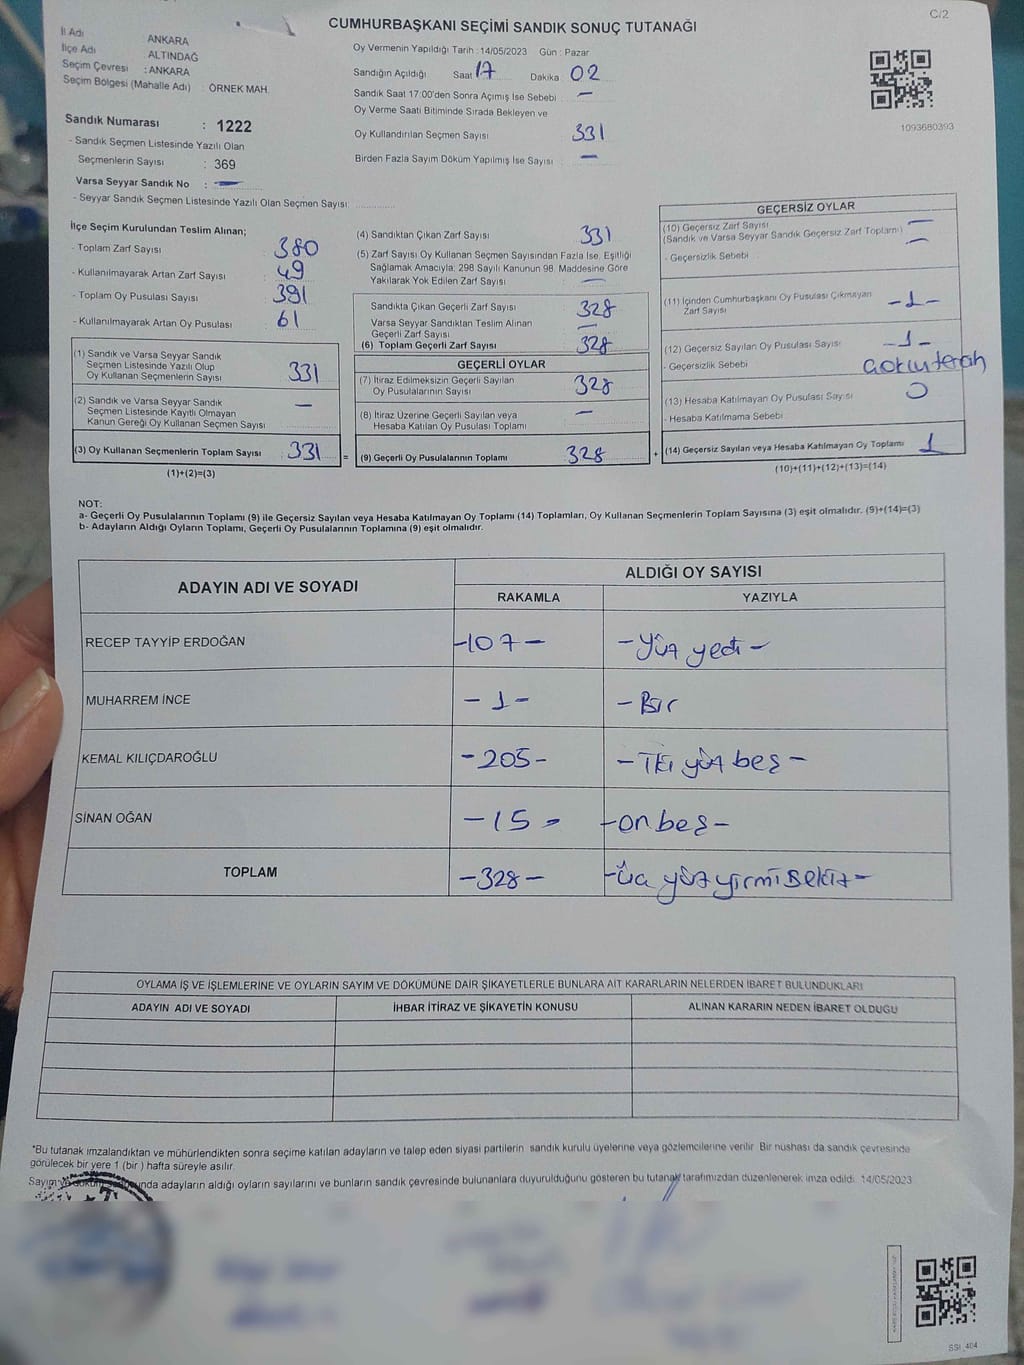 C/2
CUMHURBAŞKANI SEÇİMİ SANDIK SONUÇ TUTANAĞI
İl Adı ANKARA
İlçe Adı : ALTINDAĞ
Seçim Çevresi : ANKARA
Seçim Bölgesi (Mahalle Adı) : ÖRNEK MAH.
Sandık Numarası : 1222
- Sandık Seçmen Listesinde Yazılı Olan
Seçmenlerin Sayısı : 369
Varsa Seyyar Sandık No : —
- Seyyar Sandık Seçmen Listesinde Yazılı Olan Seçmen Sayısı:
Oy Vermenin Yapıldığı Tarih : 14/05/2023 Gün : Pazar
Sandığın Açıldığı Saat 17 Dakika 02
Sandık Saat 17:00'den Sonra Açımış İse Sebebi —
Oy Verme Saati Bitiminde Sırada Bekleyen ve
Oy Kullandırılan Seçmen Sayısı 331
Birden Fazla Sayım Döküm Yapılmış İse Sayısı —
1093680393
İlçe Seçim Kurulundan Teslim Alınan;
- Toplam Zarf Sayısı 380
- Kullanılmayarak Artan Zarf Sayısı 49
- Toplam Oy Pusulası Sayısı 391
- Kullanılmayarak Artan Oy Pusulası 61
(1) Sandık ve Varsa Seyyar Sandık
Seçmen Listesinde Yazılı Olup
Oy Kullanan Seçmenlerin Sayısı 331
(2) Sandık ve Varsa Seyyar Sandık
Seçmen Listesinde Kayıtlı Olmayan
Kanun Gereği Oy Kullanan Seçmen Sayısı —
(3) Oy Kullanan Seçmenlerin Toplam Sayısı 331 =
(1)+(2)=(3)
(4) Sandıktan Çıkan Zarf Sayısı 331
(5) Zarf Sayısı Oy Kullanan Seçmen Sayısından Fazla İse, Eşitliği
Sağlamak Amacıyla; 298 Sayılı Kanunun 98. Maddesine Göre
Yakılarak Yok Edilen Zarf Sayısı —
Sandıkta Çıkan Geçerli Zarf Sayısı 328
Varsa Seyyar Sandıktan Teslim Alınan
Geçerli Zarf Sayısı —
(6) Toplam Geçerli Zarf Sayısı 328
GEÇERLİ OYLAR
(7) İtiraz Edilmeksizin Geçerli Sayılan
Oy Pusulalarının Sayısı 328
(8) İtiraz Üzerine Geçerli Sayılan veya
Hesaba Katılan Oy Pusulası Toplamı —
(9) Geçerli Oy Pusulalarının Toplamı 328 +
GEÇERSİZ OYLAR
(10) Geçersiz Zarf Sayısı —
(Sandık ve Varsa Seyyar Sandık Geçersiz Zarf Toplamı) —
- Geçersizlik Sebebi
(11) İçinden Cumhurbaşkanı Oy Pusulası Çıkmayan
Zarf Sayısı -1-
(12) Geçersiz Sayılan Oy Pusulası Sayısı -1-
- Geçersizlik Sebebi
(13) Hesaba Katılmayan Oy Pusulası Sayısı 0
- Hesaba Katılmama Sebebi
(14) Geçersiz Sayılan veya Hesaba Katılmayan Oy Toplamı 1
(10)+(11)+(12)+(13)=(14)
NOT:
a- Geçerli Oy Pusulalarının Toplamı (9) ile Geçersiz Sayılan veya Hesaba Katılmayan Oy Toplamı (14) Toplamları, Oy Kullanan Seçmenlerin Toplam Sayısına (3) eşit olmalıdır. (9)+(14)=(3)
b- Adayların Aldığı Oyların Toplamı, Geçerli Oy Pusulalarının Toplamına (9) eşit olmalıdır.
ADAYIN ADI VE SOYADI ALDIĞI OY SAYISI
RAKAMLA YAZIYLA
RECEP TAYYİP ERDOĞAN -107- -Yüz yedi-
MUHARREM İNCE -1- -Bir
KEMAL KILIÇDAROĞLU -205- -İki yüz beş-
SİNAN OĞAN -15- -on beş-
TOPLAM -328- -üç yüz yirmi sekiz-
OYLAMA İŞ VE İŞLEMLERİNE VE OYLARIN SAYIM VE DÖKÜMÜNE DAİR ŞİKAYETLERLE BUNLARA AİT KARARLARIN NELERDEN İBARET BULUNDUKLARI
ADAYIN ADI VE SOYADI İHBAR İTİRAZ VE ŞİKAYETİN KONUSU ALINAN KARARIN NEDEN İBARET OLDUĞU
*Bu tutanak imzalandıktan ve mühürlendikten sonra seçime katılan adayların ve talep eden siyasi partilerin sandık kurulu üyelerine veya gözlemcilerine verilir. Bir nüshası da sandık çevresinde
görülecek bir yere 1 (bir ) hafta süreyle asılır.
Sayım ve döküm sonunda adayların aldığı oyların sayılarını ve bunların sandık çevresinde bulunanlara duyurulduğunu gösteren bu tutanak tarafımızdan düzenlenerek imza edildi. 14/05/2023
SSI_404